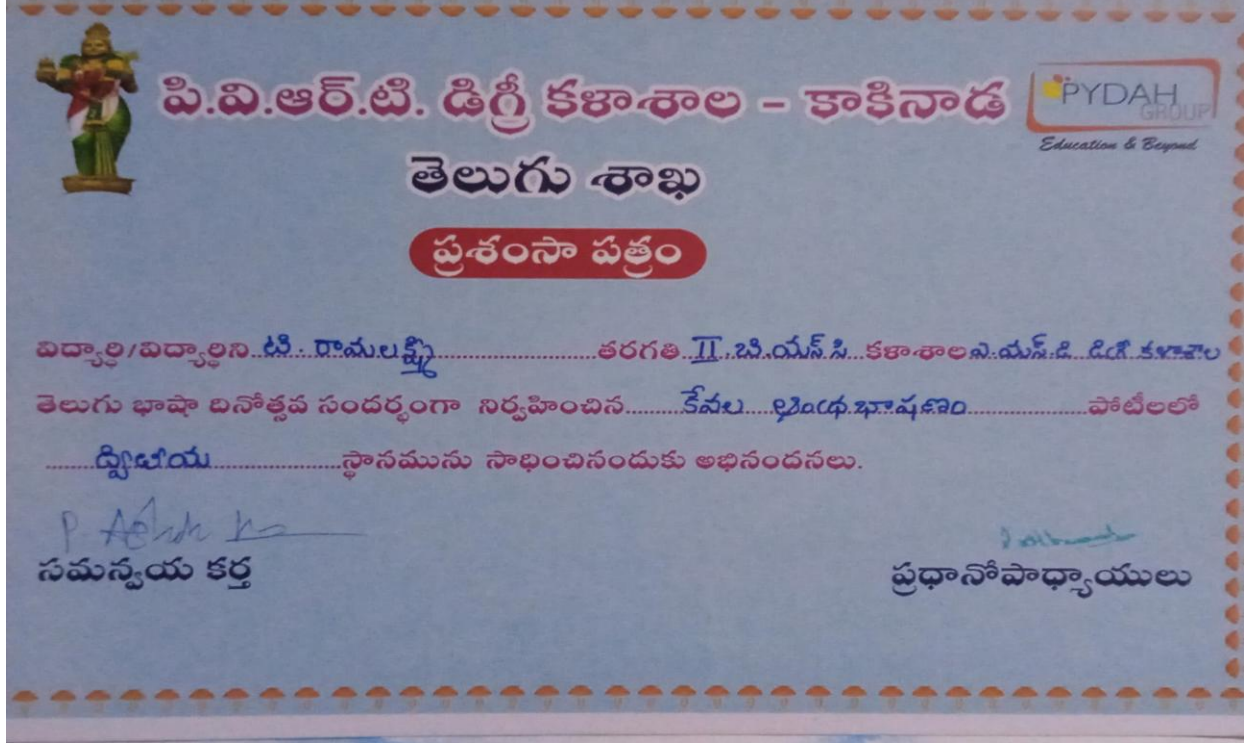 పి.వి.ఆర్.టి. డిగ్రీ కళాశాల - కాకినాడ
PYDAH
GROUP
Education & Beyond
తెలుగు శాఖ
ప్రశంసా పత్రం
విద్యార్థి/విద్యార్థిని టి. రామలక్ష్మి తరగతి II బి.యస్.సి కళాశాల ఎ.యస్.డి డిగ్రీ కళాశాల
తెలుగు భాషా దినోత్సవ సందర్భంగా నిర్వహించిన కేవల ఆంధ్ర భాషణం పోటీలలో
ద్వితీయ స్థానమును సాధించినందుకు అభినందనలు.
సమన్వయ కర్త
ప్రధానోపాధ్యాయులు